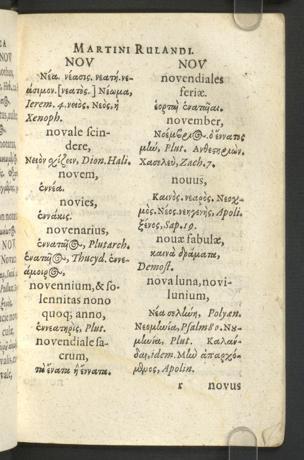 MARTINI RULANDI.
NOV
Νέα. νέασις. νεατή. νε-
άσιμον. [νεατὸς.] Νέωμα,
Ierem. 4. νειὸς. Νεὸς, ἡ
Xenoph.
novale scin-
dere,
Νειὸν χίζειν, Dion. Hali.
novem,
ἐννέα.
novies,
ἐννάκις.
novenarius,
ἐνναταῖ, Plutarch.
Thucyd. ἐννε-
novennium, & so-
lennitas nono
quoq; anno,
ἐννεατηρὶς, Plut.
novendiale sa-
crum,
τὰ ἔνατα ἢ ἔννατα.
NOV
novendiales
feriæ.
ἑορταὶ ἐναταῖαι.
november,
ὁ ἔννατος
Plut. Ἀνθεςηριών.
Χασλεῦ, Zach. 7.
novus,
Καινὸς. νεαρὸς. Νεοχ-
μὸς. Νέος. νεηγενὴς, Apoli.
ξένος, Sap. 19.
novæ fabulæ,
καινὰ δράματα,
Demost.
nova luna, novi-
lunium,
Νέα σελήνη, Polyæn.
Νεομηνία, Psalm 80. Νu-
μηνία, Plut. Καλάν-
δαι, idem. Μὴν ἀπαρχό-
μενος, Apolin.
r novus